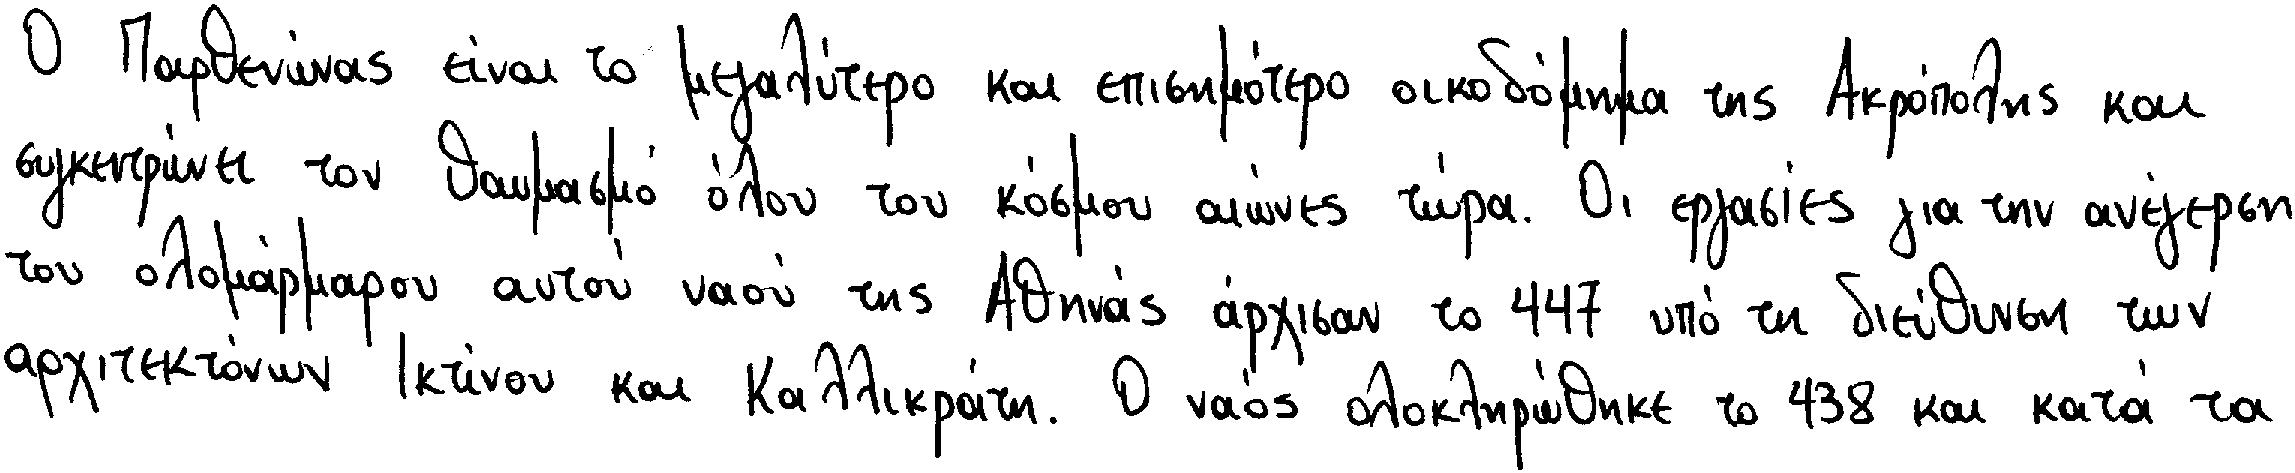 Ο Παρθενώνας είναι το μεγαλύτερο και επισημότερο οικοδόμημα της Ακρόπολης και
συγκεντρώνει τον θαυμασμό όλου του κόσμου αιώνες τώρα. Οι εργασίες για την ανέγερση
του ολομάρμαρου αυτού ναού της Αθηνάς άρχισαν το 447 υπό τη διεύθυνση των
αρχιτεκτόνων Ικτίνου και Καλλικράτη. Ο ναός ολοκληρώθηκε το 438 και κατά τα